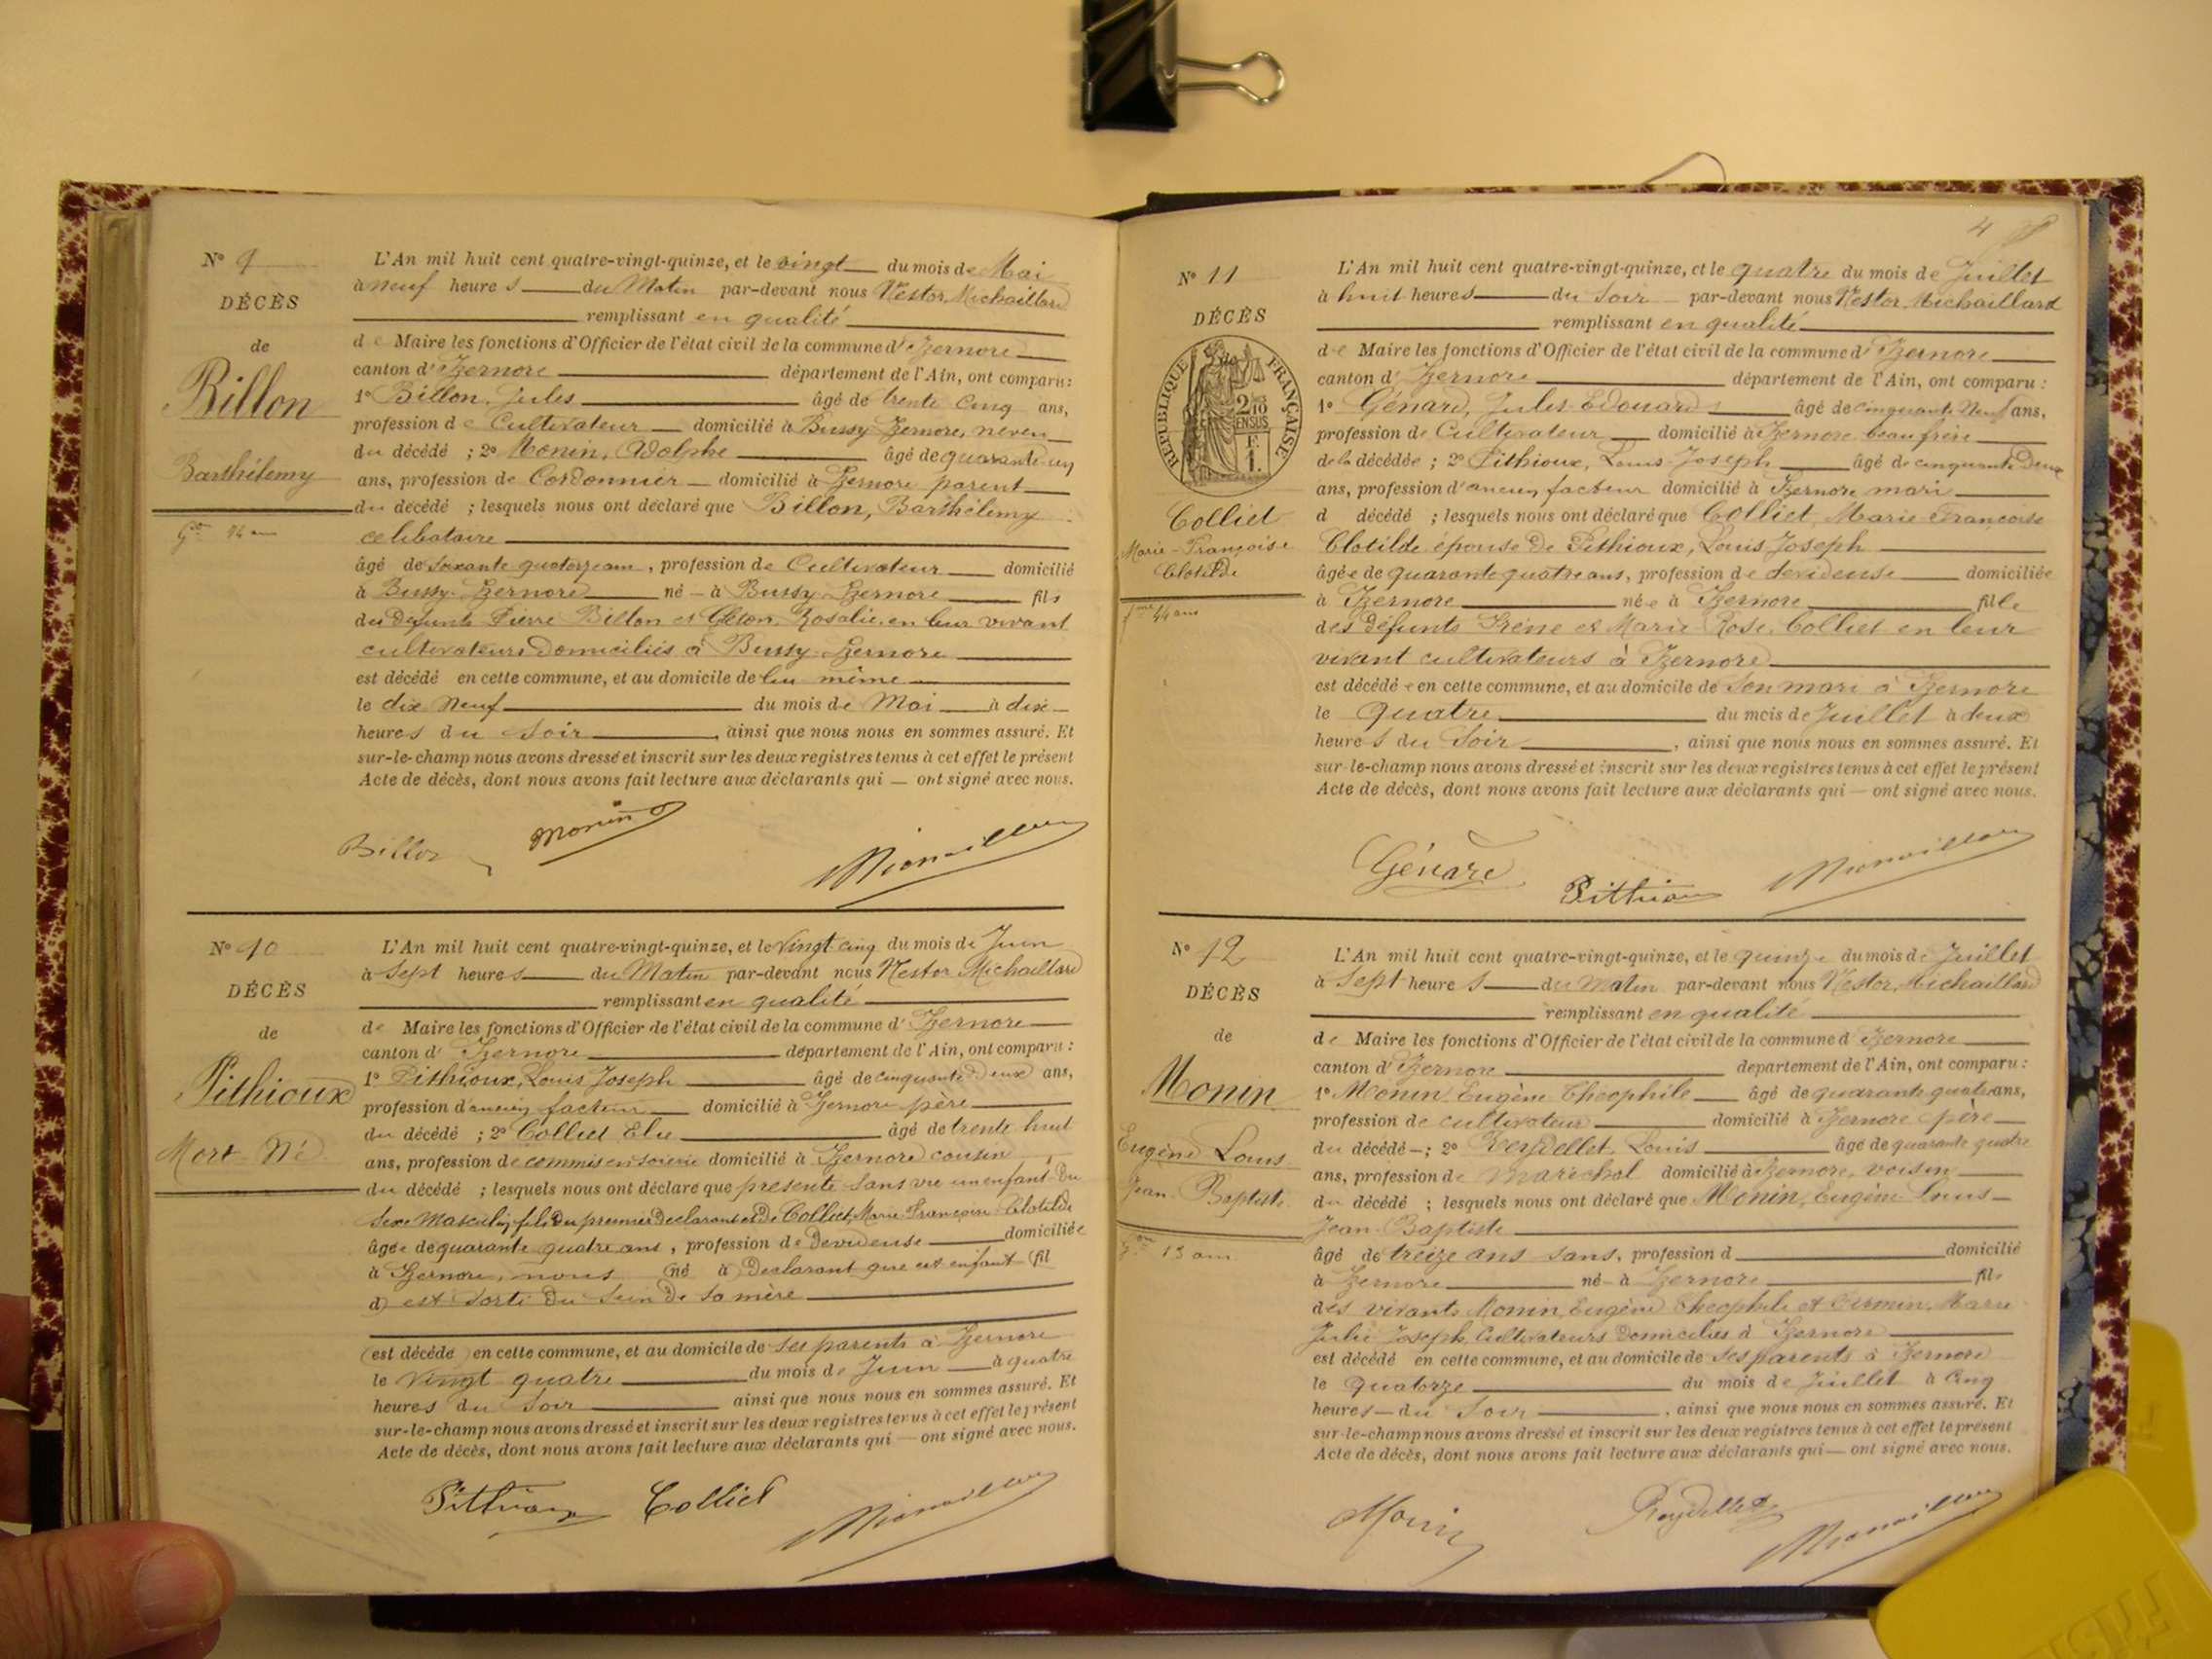 N° 9
DÉCÈS
de
Billon
Barthélemy
L'An mil huit cent quatre-vingt-quinze, et le vingt du mois de Mai
à neuf heures du Matin par-devant nous Nestor Michaillard
remplissant en qualité
de Maire les fonctions d'Officier de l'état civil de la commune d'Izernore
canton d'Izernore département de l'Ain, ont comparu :
1° Billon, Jules âgé de trente cinq ans,
profession de Cultivateur domicilié à Bussy Izernore, neveu
du décédé ; 2° Monin, Adolphe âgé de quarante-un
ans, profession de Cordonnier domicilié à Izernore parent
du décédé ; lesquels nous ont déclaré que Billon, Barthélemy
celibataire
âgé de soixante quatorze ans, profession de Cultivateur domicilié
à Bussy-Izernore né à Bussy Izernore fils
des défunts Pierre Billon et Rosalie, en leur vivant
cultivateurs domiciliés à Bussy-Izernore
est décédé en cette commune, et au domicile de lui même
le dix neuf du mois de Mai à dix
heures du Soir, ainsi que nous nous en sommes assuré. Et
sur-le-champ nous avons dressé et inscrit sur les deux registres tenus à cet effet le présent
Acte de décès, dont nous avons fait lecture aux déclarants qui — ont signé avec nous.
Billon Monin
N° 10
DÉCÈS
de
Pithioux
Mort Né
L'An mil huit cent quatre-vingt-quinze, et le Vingt cinq du mois de Juin
à Sept heures du Matin par-devant nous Nestor Michaillard
remplissant en qualité
de Maire les fonctions d'Officier de l'état civil de la commune d'Izernore
canton d'Izernore département de l'Ain, ont comparu :
1° Pithioux, Louis Joseph âgé de cinquante Deux ans,
profession d'ancien facteur domicilié à Izernore père
du décédé ; 2° Colliet Elie âgé de trente huit
ans, profession de commis en soierie domicilié à Izernore cousin
du décédé ; lesquels nous ont déclaré que présenté sans vie un enfant Du
Sexe Masculin fils Du premier Declarant et De Colliet, Marie Françoise Clotilde
âgée de quarante quatre ans, profession de Devideuse domiciliée
à Izernore, nous (né à) Declarant que cet enfant (fil
d) est sorti Du Sein De Sa mère
(est décédé) en cette commune, et au domicile de ses parents à Izernore
le Vingt quatre du mois de Juin à quatre
heures du Soir ainsi que nous nous en sommes assuré. Et
sur-le-champ nous avons dressé et inscrit sur les deux registres tenus à cet effet le présent
Acte de décès, dont nous avons fait lecture aux déclarants qui — ont signé avec nous.
Pithioux Colliet
4
N° 11
DÉCÈS
de
RÉPUBLIQUE FRANÇAISE
2/10
EN SUS
1 F.
Colliet
Marie-Françoise
Clotilde
44 ans
L'An mil huit cent quatre-vingt-quinze, et le quatre du mois de Juillet
à huit heures du Soir par-devant nous Nestor Michaillard
remplissant en qualité
de Maire les fonctions d'Officier de l'état civil de la commune d'Izernore
canton d'Izernore département de l'Ain, ont comparu :
1° Génard, Jules Edouard âgé de cinquante Neuf ans,
profession de Cultivateur domicilié à Izernore beau frère
de la décédée ; 2° Pithioux, Louis-Joseph âgé de cinquante Deux
ans, profession d'ancien facteur domicilié à Izernore mari
d décédé ; lesquels nous ont déclaré que Colliet, Marie Françoise
Clotilde épouse De Pithioux, Louis Joseph
âgée de quarante quatre ans, profession de devideuse domiciliée
à Izernore née à Izernore fille
des Défunts Irène et Marie Rose Colliet en leur
vivant cultivateurs à Izernore
est décédée en cette commune, et au domicile de Son mari à Izernore
le Quatre du mois de Juillet à deux
heures du Soir, ainsi que nous nous en sommes assuré. Et
sur-le-champ nous avons dressé et inscrit sur les deux registres tenus à cet effet le présent
Acte de décès, dont nous avons fait lecture aux déclarants qui — ont signé avec nous.
Génard Pithioux
N° 12
DÉCÈS
de
Monin
Eugène Louis
Jean-Baptiste
13 ans
L'An mil huit cent quatre-vingt-quinze, et le quinze du mois de Juillet
à Sept heures du Matin par-devant nous Nestor Michaillard
remplissant en qualité
de Maire les fonctions d'Officier de l'état civil de la commune d'Izernore
canton d'Izernore département de l'Ain, ont comparu :
1° Monin, Eugène Théophile âgé de quarante quatre ans,
profession de cultivateur domicilié à Izernore père
du décédé ; 2° Reydellet, Louis âgé de quarante quatre
ans, profession de Maréchal domicilié à Izernore, voisin
du décédé ; lesquels nous ont déclaré que Monin, Eugène Louis
Jean-Baptiste
âgé de treize ans sans, profession d domicilié
à Izernore né à Izernore fils
des vivants Monin, Eugène Théophile et Marie
Julie Joseph, Cultivateurs Domiciliés à Izernore
est décédé en cette commune, et au domicile de Ses parents à Izernore
le Quatorze du mois de Juillet à Cinq
heures du Soir, ainsi que nous nous en sommes assuré. Et
sur-le-champ nous avons dressé et inscrit sur les deux registres tenus à cet effet le présent
Acte de décès, dont nous avons fait lecture aux déclarants qui — ont signé avec nous.
Monin Reydellet